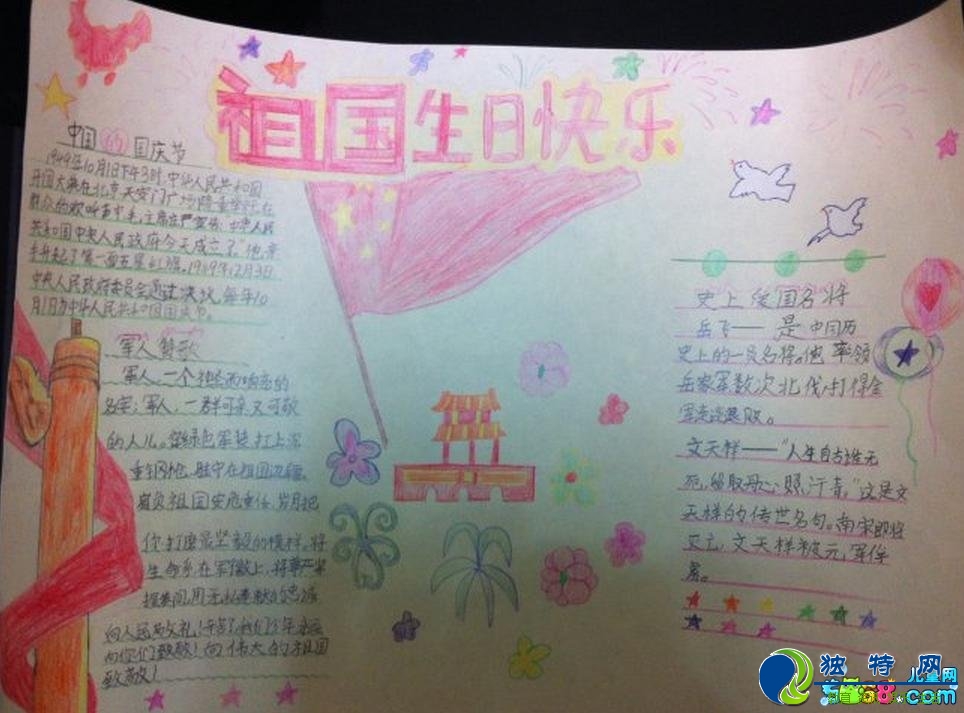 祖国生日快乐
中国的国庆节
1949年10月1日下午3时,中华人民共和国
开国大典在北京天安门广场隆重举行.在
群众的欢呼声中毛主席庄严宣告:中华人民
共和国中央人民政府今天成立了."他亲
手升起了第一面五星红旗。1949年12月3日
中央人民政府委员会通过决议,每年10
月1日为中华人民共和国国庆节。
军人赞歌
军人,一个神圣而响亮的
名字;军人,一群可亲又可敬
的人儿。绿色军装,扛上沉
重钢枪,驻守在祖国边疆。
肩负祖国安危重任,岁月把
你打磨最坚毅的模样。将
生命系在军徽上,将
向人民敬礼!我们
向你们致敬!向伟大的祖国
致敬!
史上爱国名将
岳飞——是中国历
史上的一员名将。他率领
岳家军数次北伐,打得金
军落败。
文天祥——"人生自古谁无
死,留取丹心照汗青。"这是文
天祥的传世名句。南宋即将
灭亡,文天祥被元军俘
虏。
独特网
儿童网
.com